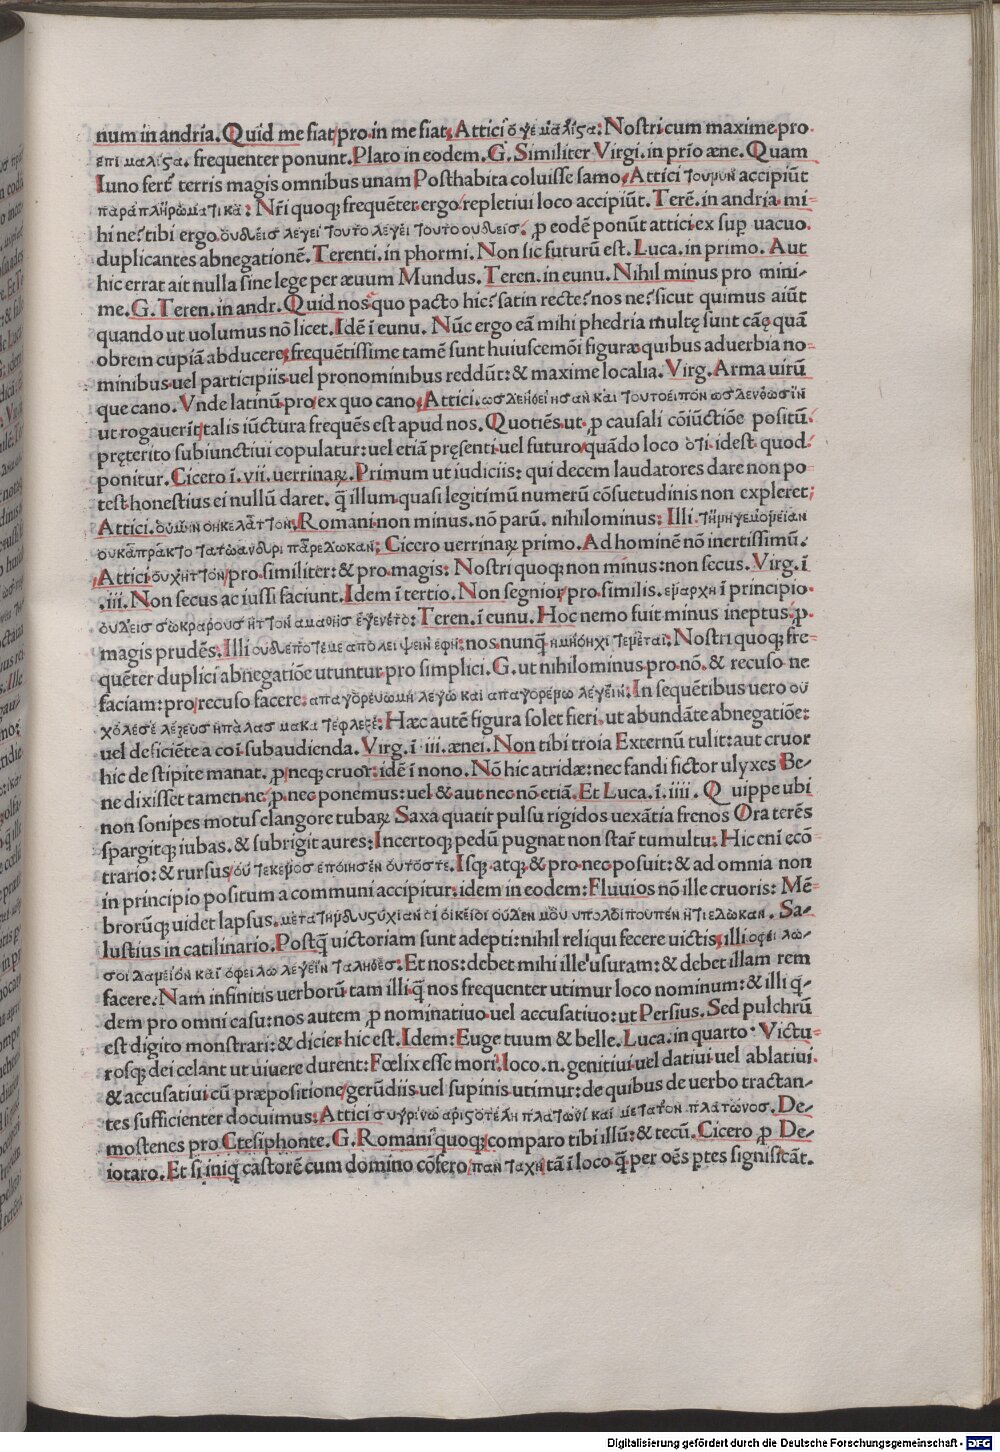 num in andria. Quid me fiat pro in me fiat. Attici ὁ γε μαλιϛα: Nostri cum maxime pro
επι μαλιϛα. frequenter ponunt. Plato in eodem. G. Similiter Virgi. in prīo æne. Quam
Iuno fert̄ terris magis omnibus unam Posthabita coluisse samo. Attici accipiūt
παραπληρωματικα: Nr̄i quoq; frequēter ergo repletiui loco accipiūt. Terē. in andria. mi-
hi ne? tibi ergo. ουδλεισ λεγει τουτο λεγει τουτο ουδλεισ. ꝓ eodē ponūt attici ex suꝑ uacuo.
duplicantes abnegationē. Terenti. in phormi. Non sic futurū est. Luca. in primo. Aut
hic errat ait nulla sine lege per æuum Mundus. Teren. in eunu. Nihil minus pro mini-
me. G. Teren. in andr. Quid nos quo pacto hic? satin recte? nos ne? sicut quimus aiūt
quando ut uolumus nō licet. Idē ī eunu. Nūc ergo eā mihi phedria multę sunt cāę quā
obrem cupiā abducere; frequētissime tamē sunt huiuscemōi figuræ quibus aduerbia no-
minibus uel participiis uel pronominibus reddūt: & maxime localia. Virg. Arma uirū
que cano. Vnde latinū pro ex quo cano. Attici.
ut rogauerīt talis iūctura frequēs est apud nos. Quotiēs ut ꝓ causali cōiūctiōe positū
pręterito subiunctiui copulatur: uel etiā pręsenti uel futuro quādo loco οτι. idest quod
ponitur. Cicero ī. vii. uerrinaꝝ. Primum ut iudiciis: qui decem laudatores dare non po-
test honestius ei nullū daret. q̄ illum quasi legitimū numerū cōsuetudinis non expleret;
Attici. Romani non minus. nō parū. nihilominus: Illi.
Cicero uerrinaꝝ primo. Ad hominē nō inertissimū.
Attici ουχ ηττον pro similiter: & pro magis: Nostri quoq; non minus: non secus. Virg. ī
.iii. Non secus ac iussi faciunt. Idem ī tertio. Non segnior pro similis. ī principio.
Teren. ī eunu. Hoc nemo fuit minus ineptus, ꝓ
magis prudēs. Illi nos nunq̄ Nostri quoq; fre-
quēter duplici abnegatiōe utuntur pro simplici. G. ut nihilominus pro nō. & recuso ne
faciam: pro recuso facere: In sequētibus uero ου
Hæc autē figura solet fieri, ut abundāte abnegatiōe:
uel deficiēte a coī subaudienda. Virg. ī iii. ænei. Non tibi troia Externū tulit: aut cruor
hic de stipite manat. ꝓ neq; cruor: idē ī nono. Nō hic atridæ: nec fandi fictor ulyxes Be-
ne dixisset tamen ne, ꝓ nec ponemus: uel & aut nec nō etiā. Et Luca. ī. iiii. Q uippe ubi
non sonipes motus clangore tubaꝝ Saxa quatit pulsu rigidos uexātia frenos Ora terēs
spargitq; iubas. & subrigit aures: Incertoq; pedū pugnat non star̄ tumultu: Hic enī ecō
trario: & rursus Isq; atq; & pro nec posuit: & ad omnia non
in principio positum a communi accipitur. idem in eodem: Fluuios nō ille cruoris: Mē-
brorūq; uidet lapsus. Sa-
lustius in catilinario. Postq̄ uictoriam sunt adepti: nihil reliqui fecere uictis. illi οφειλω-
Et nos: debet mihi ille usuram: & debet illam rem
facere. Nam infinitis uerborū tam illi q̄ nos frequenter utimur loco nominum: & illi q̄-
dem pro omni casu: nos autem ꝓ nominatiuo uel accusatiuo: ut Persius. Sed pulchrū
est digito monstrari: & dicier hic est. Idem: Euge tuum & belle. Luca. in quarto. Victu-
rosq; dei celant ut uiuere durent: Fœlix esse mori. loco. n. genitiui uel datiui uel ablatiui
& accusatiui cū præpositione gerūdiis uel supinis utimur: de quibus de uerbo tractan-
tes sufficienter docuimus: Attici συγρινω αριϛοτελη πλατωνι και μετα τον πλατωνοσ. De-
mostenes pro Ctesiphonte. G. Romani quoq; comparo tibi illū: & tecū. Cicero ꝓ De-
iotaro. Et si iniq castorē cum domino cōfero, παν ταχη tā ī loco q̄ per oēs ꝑtes significāt.
Digitalisierung gefördert durch die Deutsche Forschungsgemeinschaft - DFG